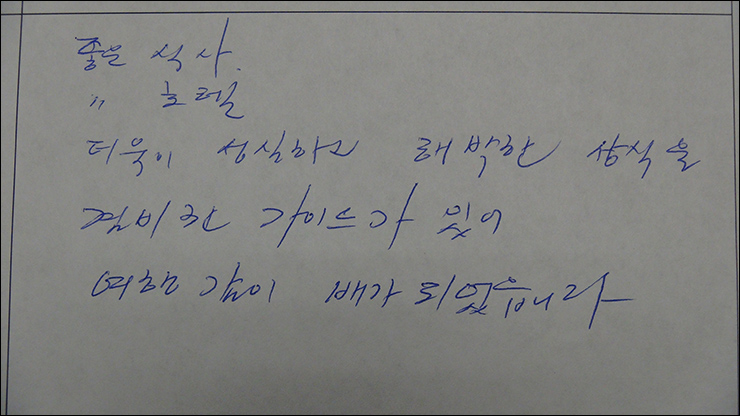 좋은 식사.
〃 호텔
더욱이 성실하고 해박한 상식을
겸비한 가이드가 있어
여행 값이 배가 되었습니다